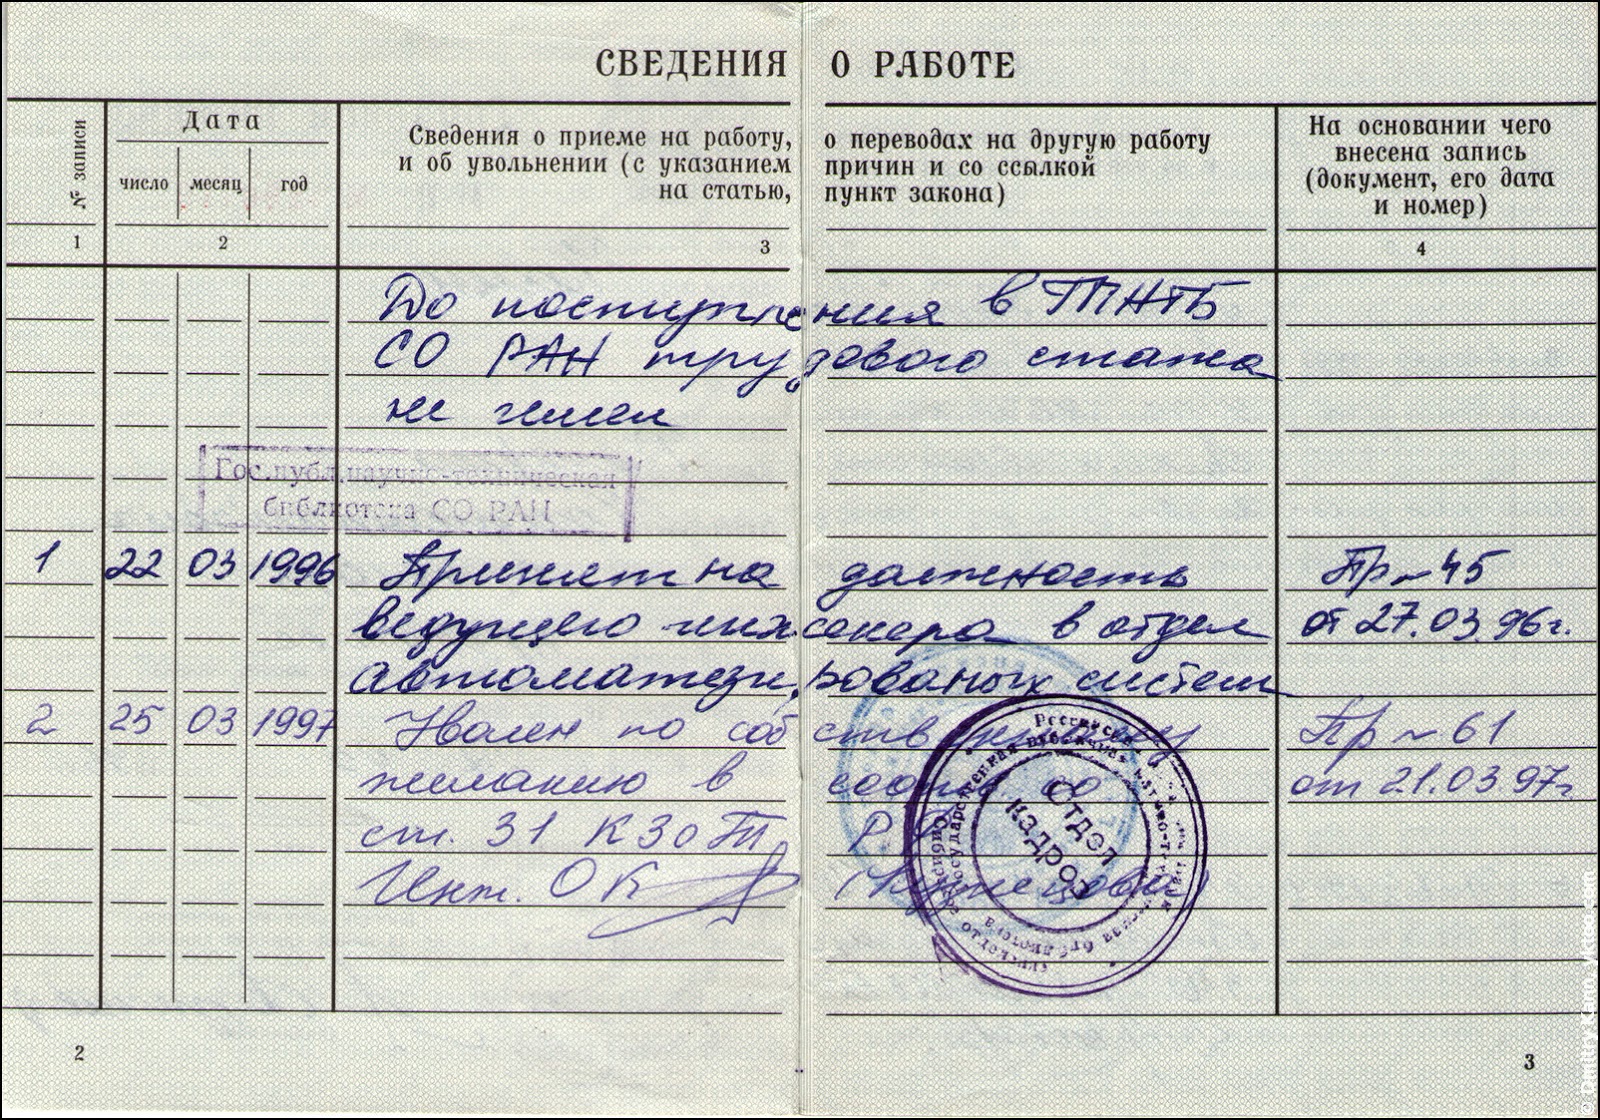 СВЕДЕНИЯ О РАБОТЕ
№ записи
Дата
число месяц год
Сведения о приеме на работу, о переводах на другую работу
и об увольнении (с указанием причин и со ссылкой
на статью, пункт закона)
На основании чего
внесена запись
(документ, его дата
и номер)
1 2 3 4
До поступления в ГПНТБ
СО РАН трудового стажа
не имел
Гос.публ.научно-техническая
библиотека СО РАН
1 22 03 1996 Принят на должность Пр № 45
ведущего инженера в отдел от 27.03.96г.
автоматизированых систем
2 25 03 1997 Уволен по собств Пр № 61
желанию в от 21.03.97г
ст. 31 КЗоТ Р
Инт. ОК
Отдел
кадров
2
3
© Dmitry Kann, yktoo.com